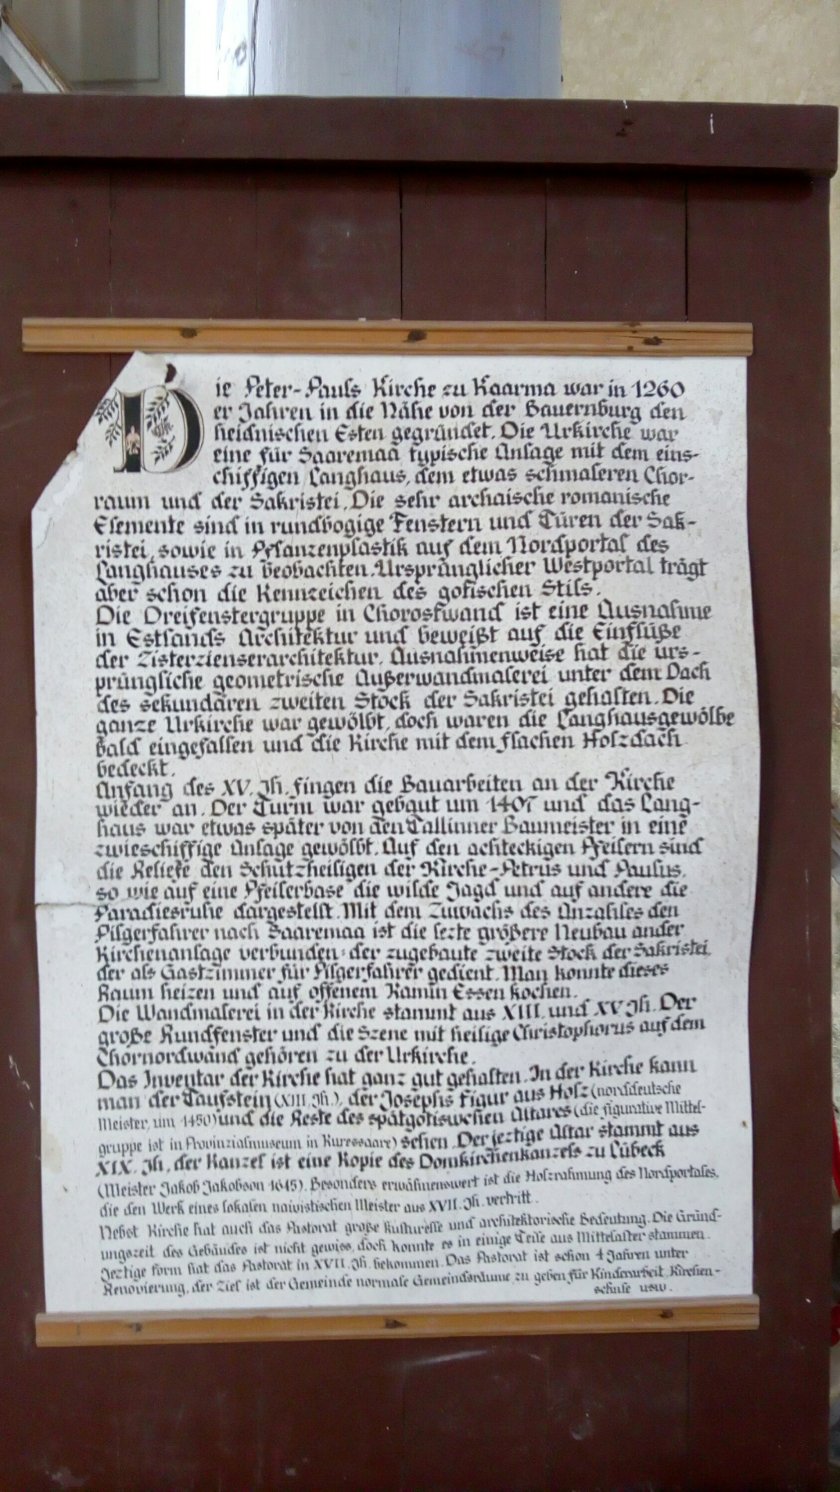 Die Peter-Pauls Kirche zu Kaarma war in 1260
er Jahren in die Nähe von der Bauernburg den
heidnischen Esten gegründet. Die Urkirche war
eine für Saaremaa typische Anlage mit dem eins-
chiffigen Langhaus, dem etwas schmaleren Chor-
raum und der Sakristei. Die sehr archaische romanische
Elemente sind in rundbogige Fenstern und Türen der Sak-
ristei, sowie in Pflanzenplastik auf dem Nordportal des
Langhauses zu beobachten. Ursprünglicher Westportal trägt
aber schon die Kennzeichen des gotischen Stils.
Die Dreifenstergruppe in Chorostwand ist eine Ausnahme
in Estlands Architektur und beweißt auf die Einflüße
der Zisterzienserarchitektur. Ausnahmenweise hat die urs-
prüngliche geometrische Außerwandmalerei unter dem Dach
des sekundären zweiten Stock der Sakristei gehalten. Die
ganze Urkirche war gewölbt, doch waren die Langhausgewölbe
bald eingefallen und die Kirche mit dem flachen Holzdach
bedeckt.
Anfang des XV. Jh. fingen die Bauarbeiten an der Kirche
wieder an. Der Turm war gebaut um 1407 und das Lang-
haus war etwas später von den Tallinner Baumeister in eine
zwieschiffige Anlage gewölbt. Auf den achteckigen Pfeilern sind
die Reliefe den Schutzheiligen der Kirche-Petrus und Paulus,
so wie auf eine Pfeilerbase die wilde Jagd und auf andere die
Paradiesruhe dargestellt. Mit dem Zuwachs des Anzahles den
Pilgerfahrer nach Saaremaa ist die lezte größere Neubau ander
Kirchenanlage verbunden: der zugebaute zweite Stock der Sakristei,
der als Gastzimmer für Pilgerfahrer gedient. Man konnte dieses
Raum heizen und auf offenem Kamin Essen kochen.
Die Wandmalerei in der Kirche stammt aus XIII. und XV Jh. Der
große Rundfenster und die Szene mit heilige Christophorus auf dem
Chornordwand gehören zu der Urkirche.
Das Inventar der Kirche hat ganz gut gehalten. In der Kirche kann
man der Taufstein (XIII Jh.), der Josephs Figur aus Holz (norddeutsche
Meister, um 1450) und die Reste des spätgotiswchen Altares (die figurative Mittel-
gruppe ist in Provinzialmuseum in Kuressaare) sehen. Der jeztige Altar stammt aus
XIX. Jh, der Kanzel ist eine Kopie des Domkirchenkanzels zu Lübeck
(Meister Jakob Jakobson 1645). Besonders erwähnenswert ist die Holzrahmung des Nordportales,
die den Werk eines lokalen naivistischen Meister aus XVII. Jh. vertritt.
Nebst Kirche hat auch das Pastorat große kulturelle und architektorische Bedeutung. Die Gründ-
ungszeit des Gebäudes ist nicht gewiss, doch konnte es in einige Teile aus Mittelalter stammen.
Jeztige Form hat das Pastorat in XVII. Jh. bekommen. Das Pastorat ist schon 4 Jahren unter
Renovierung, der Ziel ist der Gemeinde normale Gemeindsräume zu geben für Kinderarbeit, Kirchen-
schule usw.